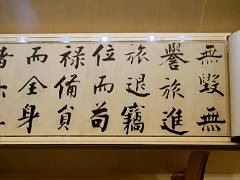 無毀無
譽旅進
旅退竊
位而苟
禄備員
而全身
者